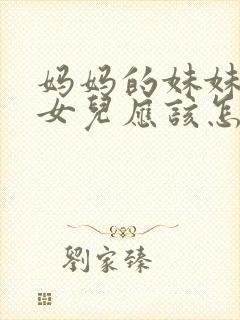 妈妈的妹妹
女兒應該怎
劉家臻